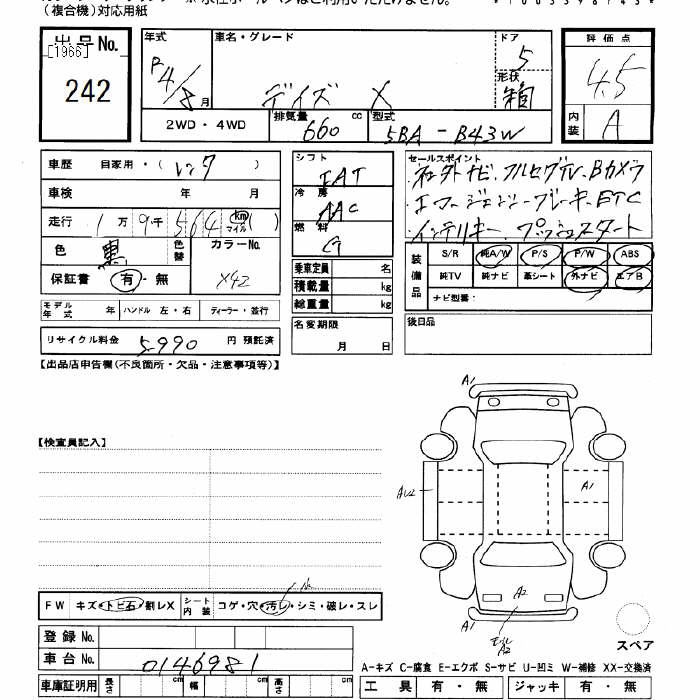 (複合機)対応用紙
出品No. [1966] 242
年式 R4/8月
車名・グレード デイズ X
ドア 5
形状 箱
2WD・4WD
排気量 660 cc
型式 5BA-B43W
評価点 4.5
内装 A
車歴 自家用・(レンタ)
車検 年 月
走行 1万9千564 km マイル ( )
色 黒 色替 カラーNo. X42
保証書 有・無
モデル年式 年 ハンドル 左・右 ディーラー・並行
リサイクル料金 5,990 円 預託済
シフト IAT
冷房 AAC
燃料 G
乗車定員 名
積載量 kg
総重量 kg
名変期限 月 日
セールスポイント
ネット外ナビ、フルセグTV、Bカメラ
エマージェンシーブレーキ、ETC
インテリキー、プッシュスタート
装備品 S/R 純A/W P/S P/W ABS
純TV 純ナビ 革シート 外ナビ エアB
ナビ型番:
後日品
【出品店申告欄(不良箇所・欠品・注意事項等)】
A1
【検査員記入】
AU2
A1
A2
A1
A2
FW キズ・トビ石・割レX シート内装 コゲ・穴・汚レ・シミ・破レ・スレ
登録No.
車台No. 0146981
車庫証明用 長さ cm 幅 cm 高さ cm
スペア
A-キズ C-腐食 E-エクボ S-サビ U-凹ミ W-補修 XX-交換済
工具 有・無 ジャッキ 有・無